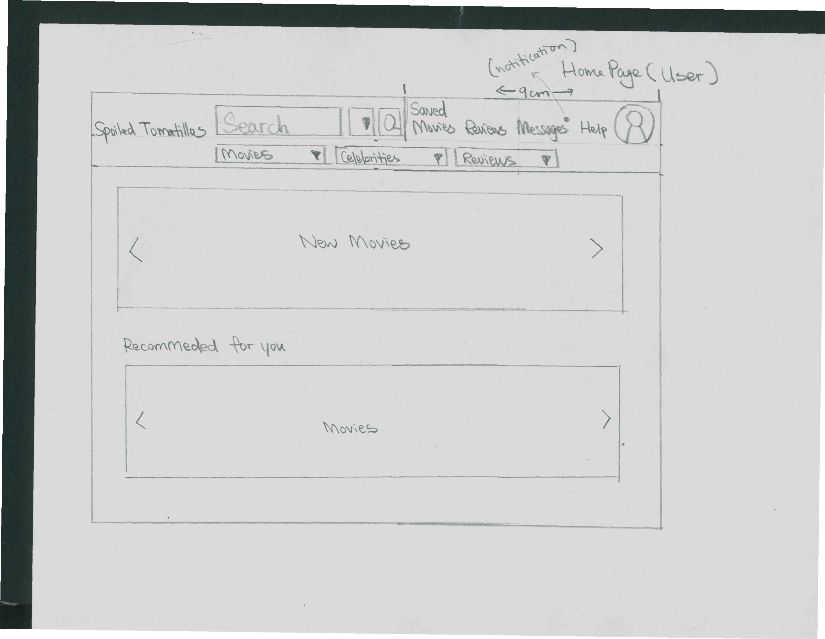 (notification)
Home Page (User)
9cm
Spoiled Tomatillos
Search
Saved
Movies Reviews Messages Help
Movies
Celebrities
Reviews
New Movies
Recommeded for you
Movies